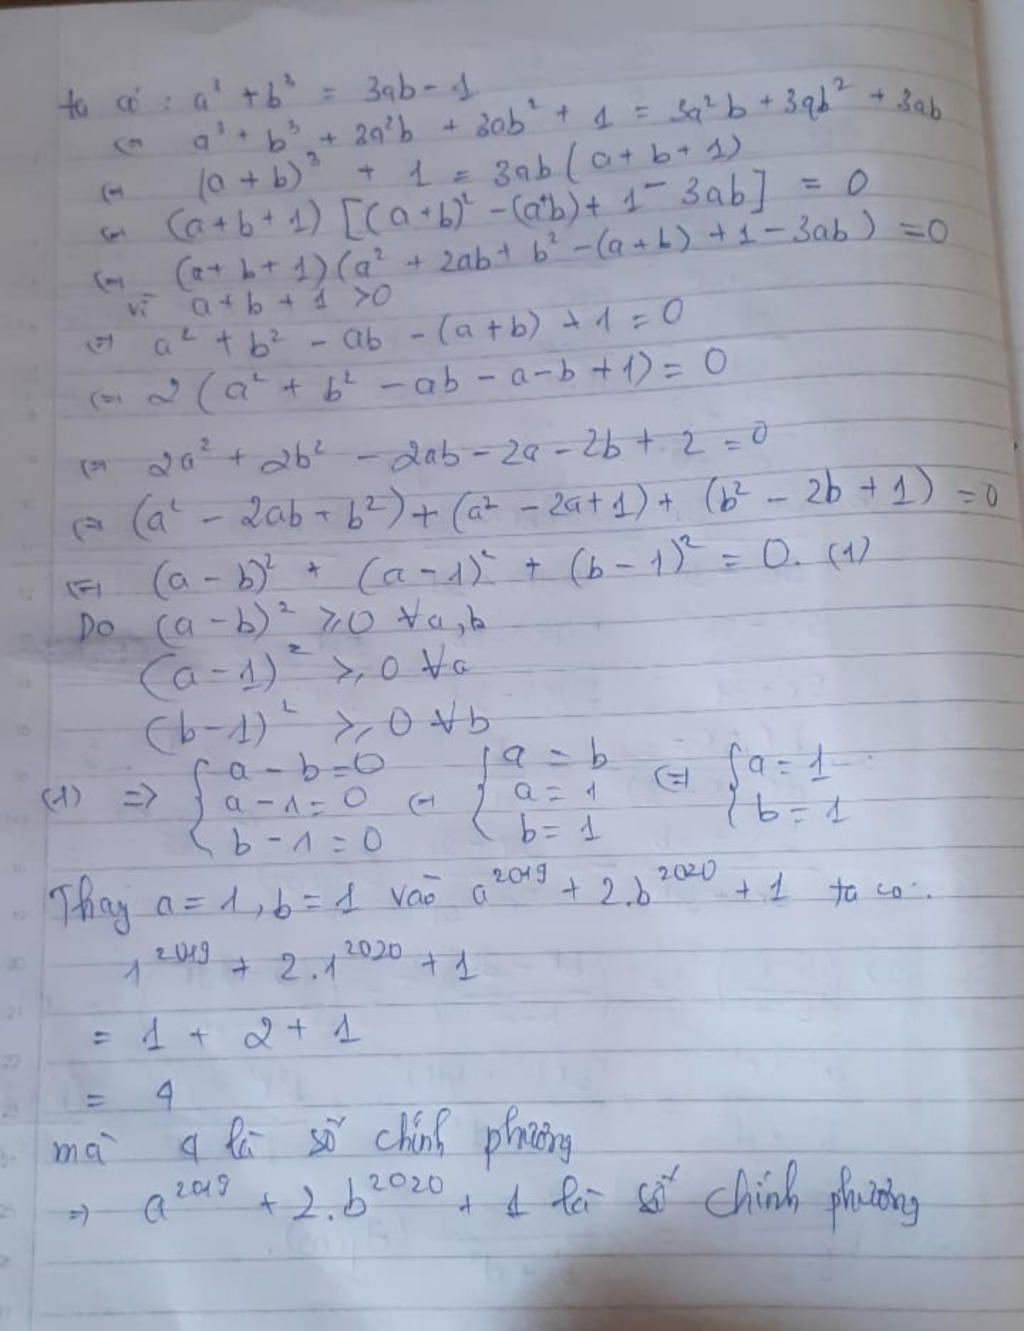 ta có : a³ + b³ = 3ab - 1
⇔ a³ + b³ + 3a²b + 3ab² + 1 = 3a²b + 3ab² + 3ab
⇔ (a + b)³ + 1 = 3ab (a + b + 1)
⇔ (a + b + 1) [(a + b)² - (a+b) + 1 - 3ab] = 0
⇔ (a + b + 1) (a² + 2ab + b² - (a + b) + 1 - 3ab) = 0
vì a + b + 1 > 0
⇔ a² + b² - ab - (a + b) + 1 = 0
⇔ 2 (a² + b² - ab - a - b + 1) = 0
⇔ 2a² + 2b² - 2ab - 2a - 2b + 2 = 0
⇔ (a² - 2ab + b²) + (a² - 2a + 1) + (b² - 2b + 1) = 0
⇔ (a - b)² + (a - 1)² + (b - 1)² = 0. (1)
Do (a - b)² ≥ 0 ∀a,b
(a - 1)² ≥ 0 ∀a
(b - 1)² ≥ 0 ∀b
(1) ⇒ { a - b = 0 ; a - 1 = 0 ; b - 1 = 0 ⇔ { a = b ; a = 1 ; b = 1 ⇔ { a = 1 ; b = 1
Thay a = 1, b = 1 vào a²⁰¹⁹ + 2.b²⁰²⁰ + 1 ta có:
1²⁰¹⁹ + 2.1²⁰²⁰ + 1
= 1 + 2 + 1
= 4
mà 4 là số chính phương
⇒ a²⁰¹⁹ + 2.b²⁰²⁰ + 1 là số chính phương